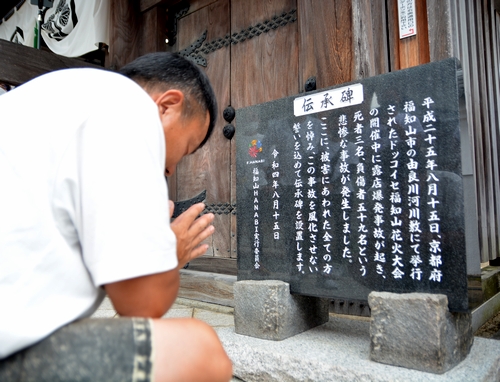 伝承碑
平成二十五年八月十五日、京都府
福知山市の由良川河川敷にて挙行
されたドッコイセ福知山花火大会
の開催中に露店爆発事故が起き、
死者三名、負傷者五十九名という
悲惨な事故が発生しました。
ここに、被害にあわれた全ての方
を悼み、この事故を風化させない
誓いを込めて伝承碑を設置します。
令和四年八月十五日
福知山HANABI実行委員会